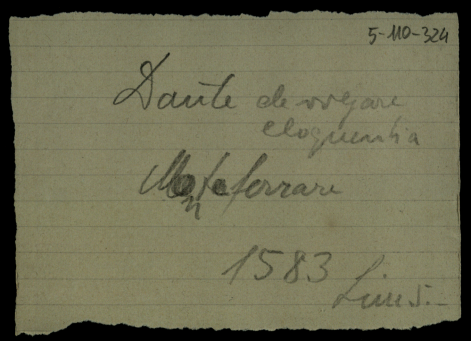 5-110-324
Dante de volgare
eloquentia
Monteferrare
1583